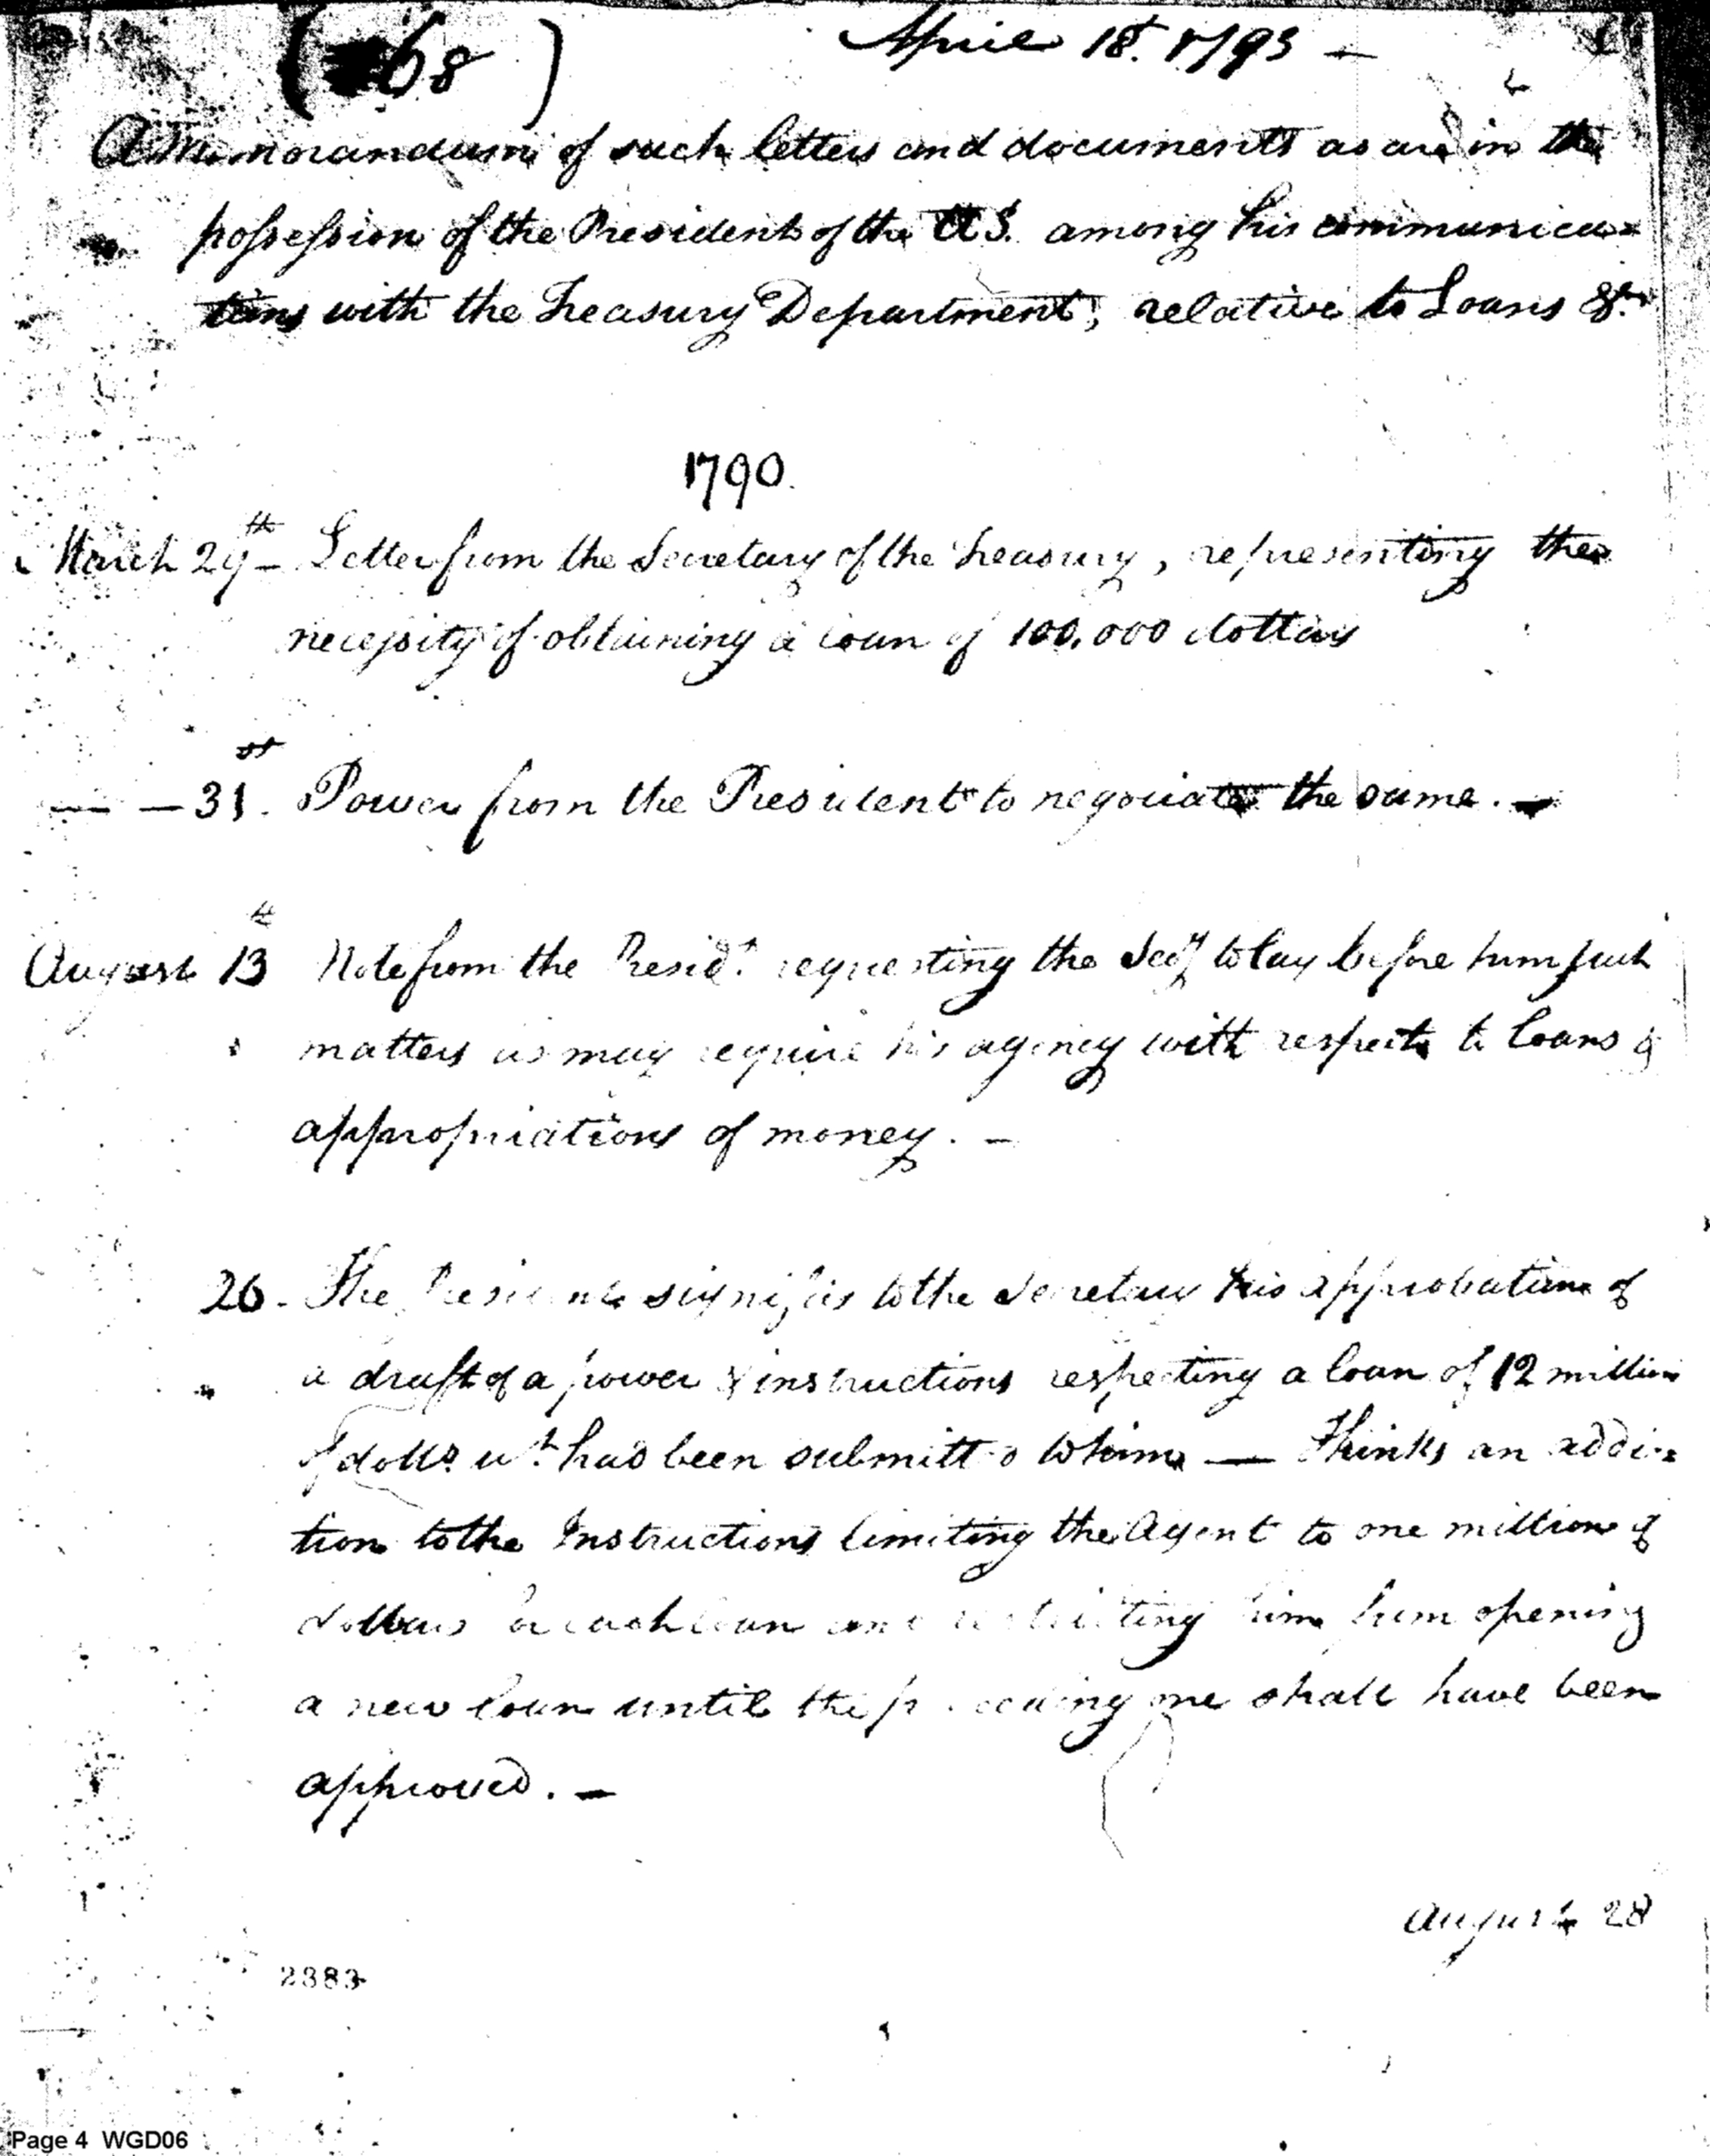 (68)
April 18. 1793 —
A Memorandum of such letters and documents as are in the
possession of the President of the U.S. among his communica=
tions with the Treasury Department, relative to Loans &c.
1790.
March 29th — Letter from the Secretary of the Treasury, representing the
necessity of obtaining a loan of 100,000 dollars
— — 31st. Power from the President to negociate the same. —
August 13th Note from the Presidt. requesting the Secy to lay before him such
matters as may require his agency with respect to loans &
appropriations of money. —
26. The President signifies to the Secretary his approbation of
a draft of a power & instructions respecting a loan of 12 million
of dolls. wh. had been submitted to him — Thinks an addi=
tion to the Instructions limiting the Agent to one million of
dollars for each loan and restricting him from opening
a new loan until the preceeding one shall have been
approved. —
August 28
2383
Page 4 WGD06